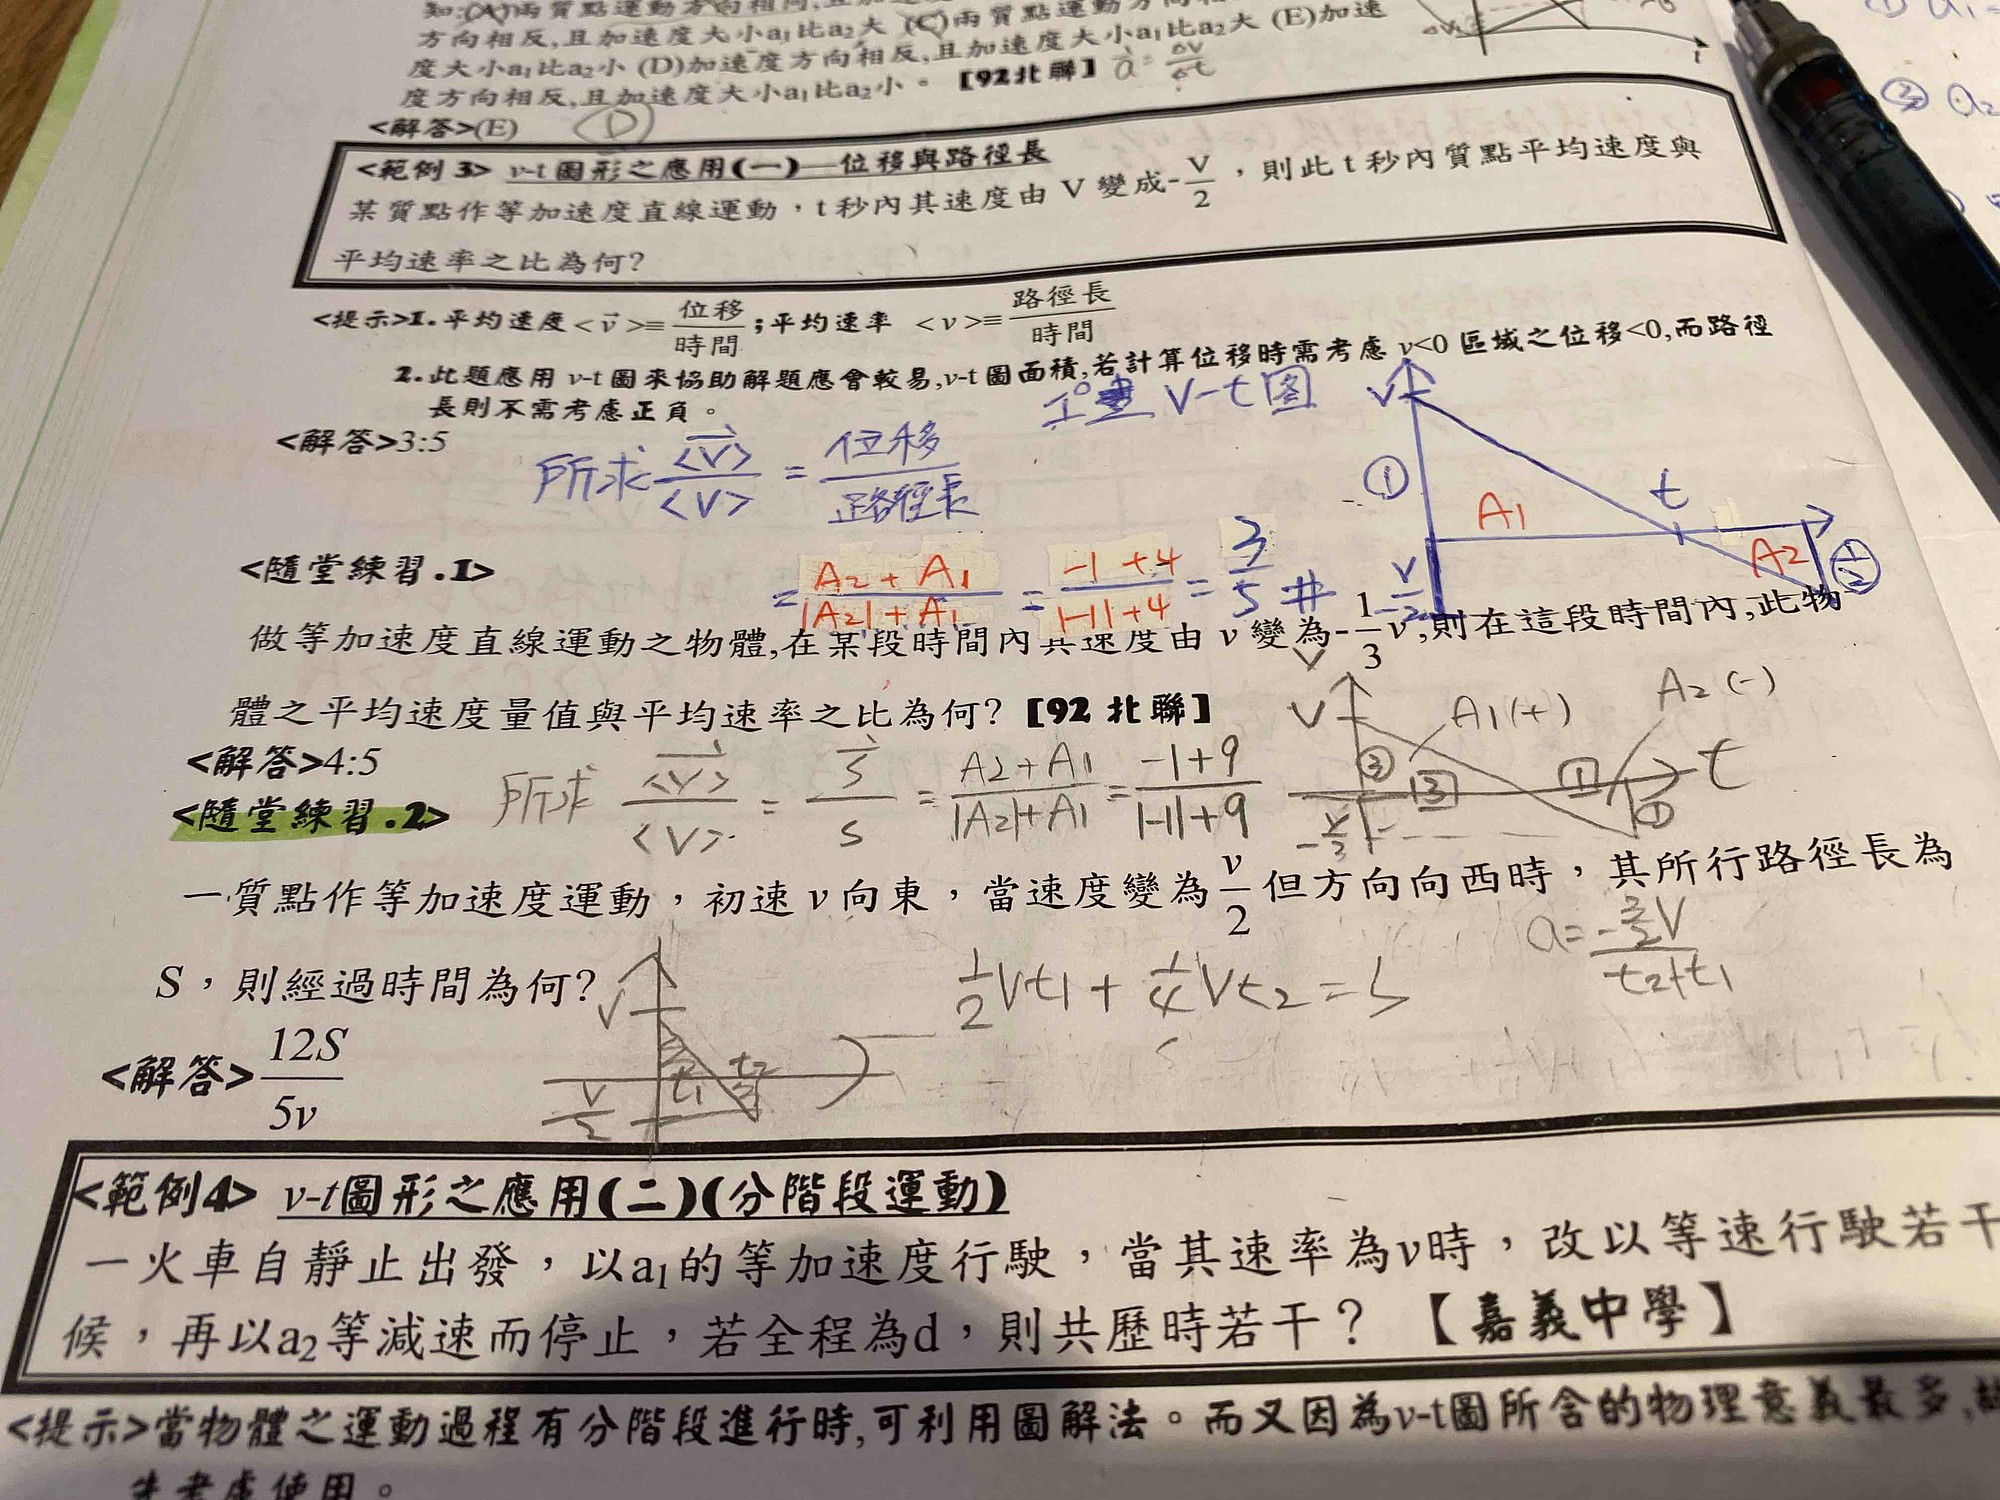 方向相反,且加速度大小a₁比a₂大 (C)兩質點運動方向相
度大小a₁比a₂小 (D)加速度方向相反,且加速度大小a₁比a₂大 (E)加速
度方向相反,且加速度大小a₁比a₂小。【92北聯】 a = Δv/Δt
<解答>(E) D
<範例 3> v-t 圖形之應用(一)—位移與路徑長
某質點作等加速度直線運動，t 秒內其速度由 V 變成-V/2，則此 t 秒內質點平均速度與
平均速率之比為何?
<提示>1.平均速度<v⃗>≡位移/時間；平均速率 <v>≡路徑長/時間
2.此題應用 v-t 圖來協助解題應會較易,v-t 圖面積,若計算位移時需考慮 v<0 區域之位移<0,而路徑
長則不需考慮正負。
1° 畫 V-t 図
<解答>3:5
所求 <v⃗>/<V> = 位移/路徑長
= (A2 + A1)/(|A2| + A1) = (-1 + 4)/(|-1| + 4) = 3/5 #
V ① A1 t A2 1/2 -V/2
<隨堂練習.1>
做等加速度直線運動之物體,在某段時間內其速度由 v 變為-1/3 v,則在這段時間內,此物
體之平均速度量值與平均速率之比為何?【92 北聯】
<解答>4:5
所求 <v⃗>/<V> = S⃗/S = (A2 + A1)/(|A2| + A1) = (-1 + 9)/(|-1| + 9)
V A1(+) A2(-) ③ 3 1 t ① -V/3
<隨堂練習.2>
一質點作等加速度運動，初速 v 向東，當速度變為 v/2 但方向向西時，其所行路徑長為
S，則經過時間為何?
V t1 t2 V/2
1/2 Vt1 + 1/4 Vt2 = S
a = -3/2 V/(t2+t1)
<解答>12S/5v
<範例4> v-t圖形之應用(二)(分階段運動)
一火車自靜止出發，以a₁的等加速度行駛，當其速率為v時，改以等速行駛若干
候，再以a₂等減速而停止，若全程為d，則共歷時若干？【嘉義中學】
<提示>當物體之運動過程有分階段進行時,可利用圖解法。而又因為v-t圖所含的物理意義最多,
先考慮使用。